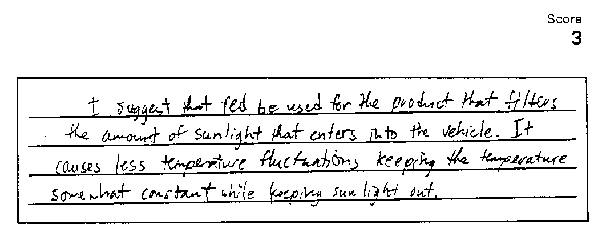 Score
3
I suggest that red be used for the product that filters
the amount of sunlight that enters into the vehicle. It
causes less temperature fluctuations keeping the temperature
somewhat constant while keeping sunlight out.